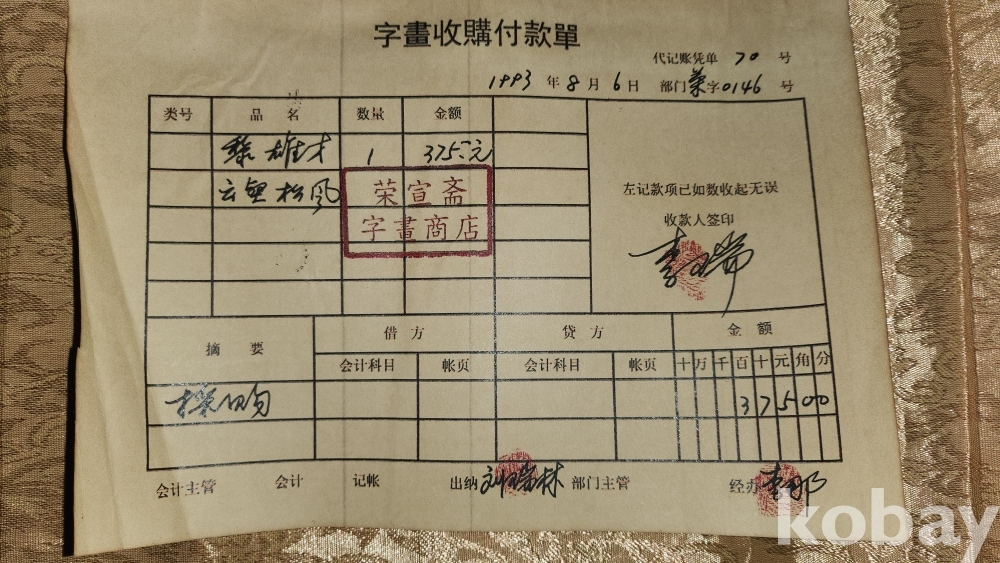 字畫收購付款單
代记账凭单 70 号
1993 年 8 月 6 日 部门 荣字0146 号
类号 品名 数量 金额
黎雄才 1 375.00元
松风
荣宣斋
字畫商店
左记款项已如数收起无误
收款人签印
摘要 借方 贷方 金额
会计科目 帐页 会计科目 帐页 十万千百十元角分
采购 37500
会计主管 会计 记帐 出纳 刘瑞林 部门主管 经办
kobay